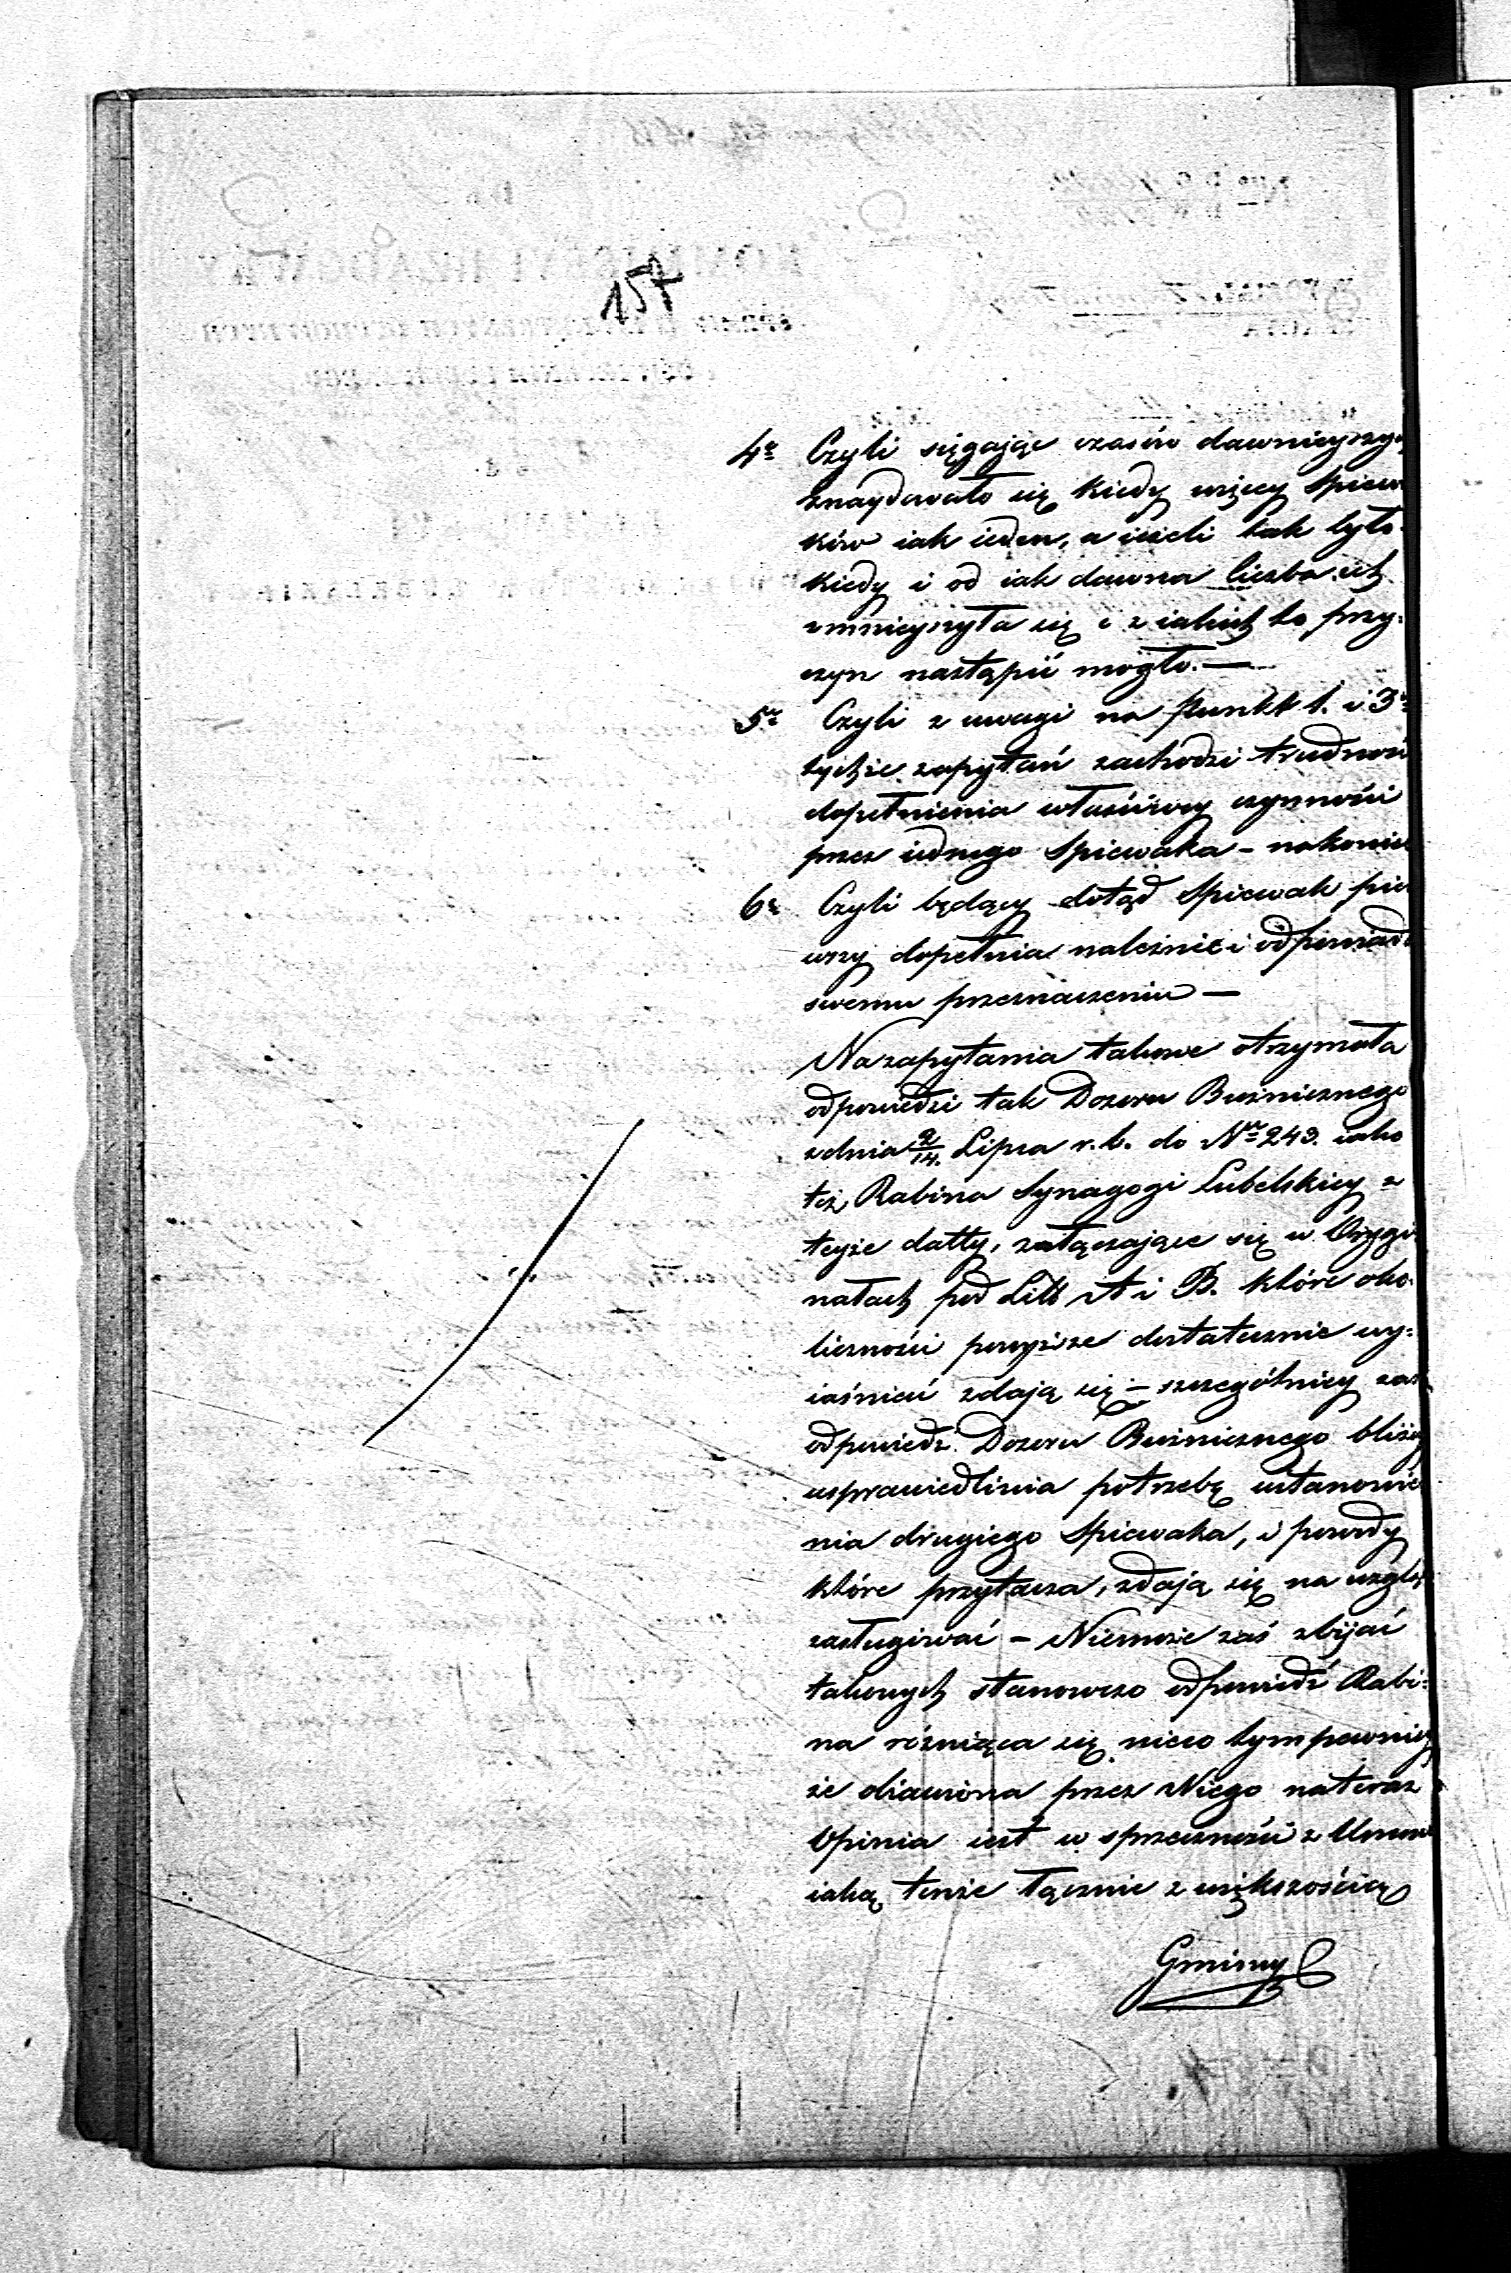 157
4o Czyli sięgając czasów dawnieyszy
znaydowało się kiedy więcey Spiewa
ków iak ieden, a ieżeli tak było
kiedy i od iak dawna liczba ich
zmnieyszyła się i z iakich to przy:
czyn nastąpić mogło. —
5o Czyli z uwagi na punkt 1. i 3o
tychże zapytań zachodzi trudność
dopełnienia właściwey czynności
przez iednego Spiewaka – nakoniec
6o Czyli będący dotąd Spiewak pier
wszy dopełnia należnie i odpowiada
swemu przeznaczeniu —
Na zapytania takowe otrzymała
odpowiedzi tak Dozoru Bużnicznego
z dnia 2/14. Lipca r. b. do Nro 243. iako
też Rabina Synagogi Lubelskiey z
teyże datty, załączające się w Orygi
nałach pod Litt A i B. które oko:
liczności powyższe dostatecznie wy:
iaśnieć zdają się – szczególniey zaś
odpowiedź Dozoru Bużnicznego bliżey
usprawiedliwia potrzebę ustanowie
nia drugiego Spiewaka, i powody
które przytacza, zdają się na wzglę
zasługiwać – Niemoże zaś zbijać
takowych stanowczo odpowiedź Rabi:
na różniąca się nieco tym pewniey
że obiawiona przez Niego nateraz
Opinia iest w sprzeczności z Umową
iaką tenże łącznie z większością
Gminy